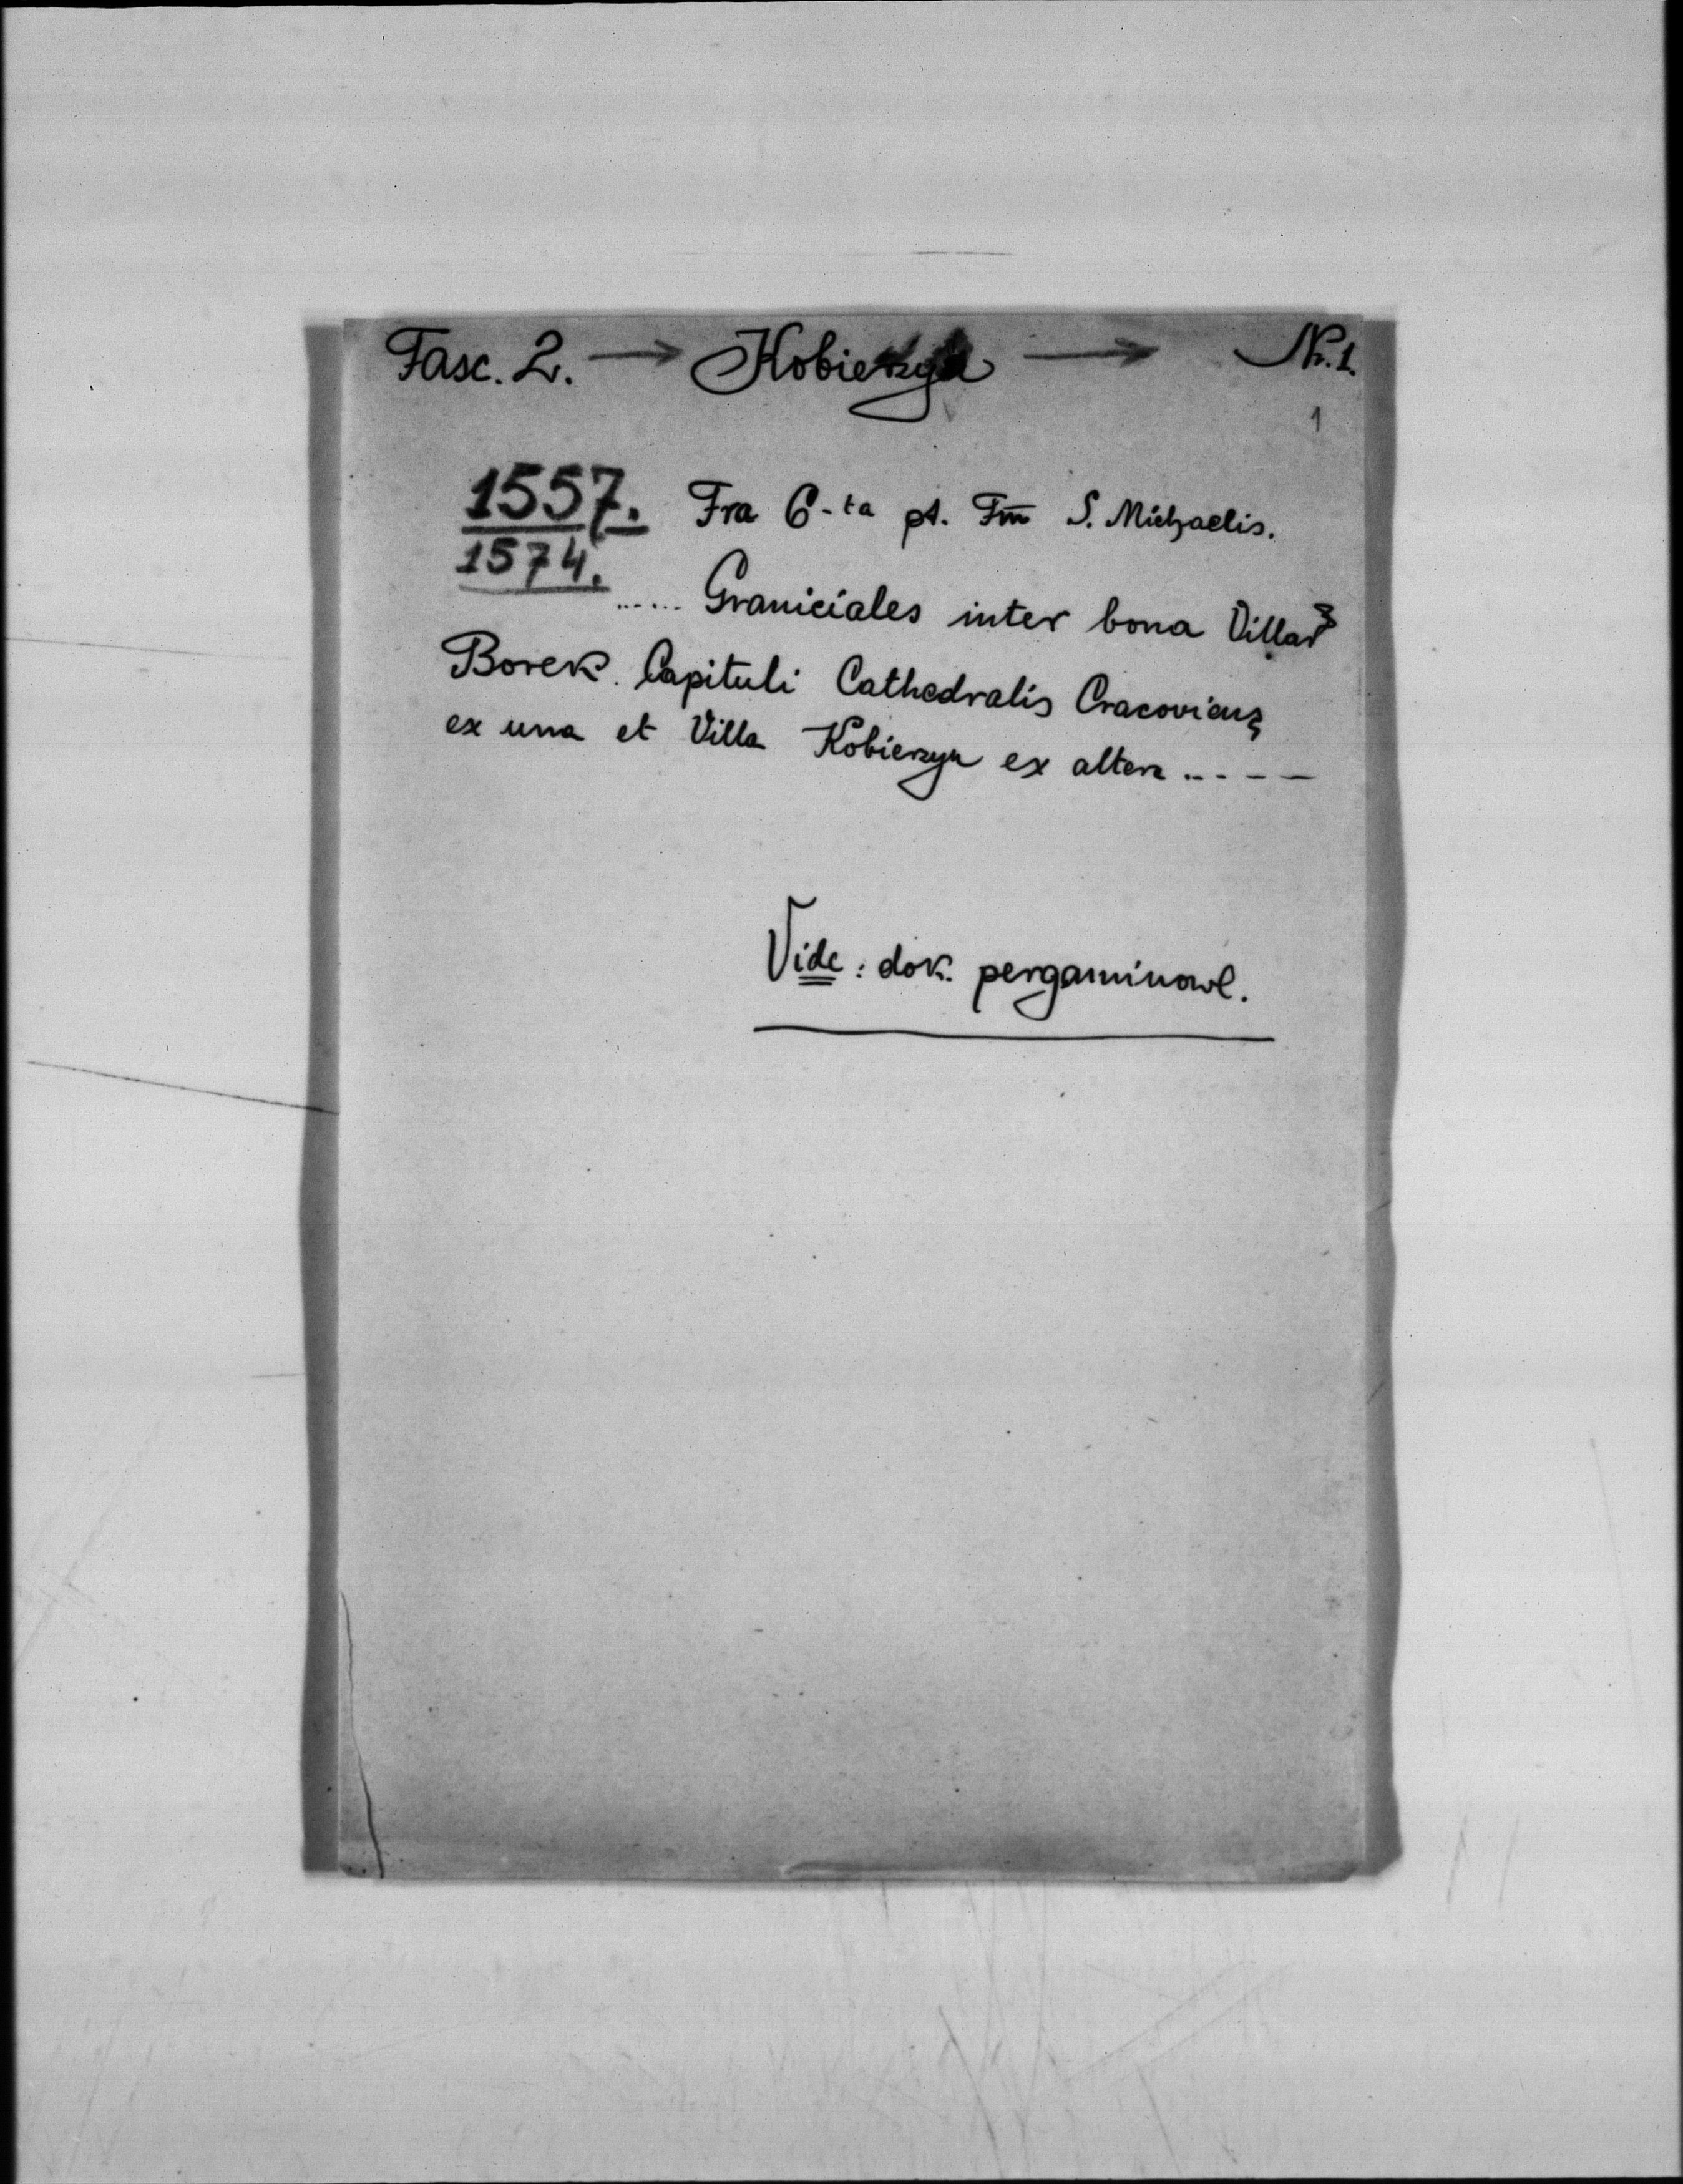 Fasc. 2. → Kobierzyn → Nr. 1.
1
1557. Fra 6-ta pt. Fm̄ S. Michaelis.
1574.
...... Graniciales inter bona Villaꝝ
Borek. Capituli Cathedralis Cracovienꝫ
ex una et Villa Kobierzyn ex altera .. - - —
Vide: dok. pergaminowe.